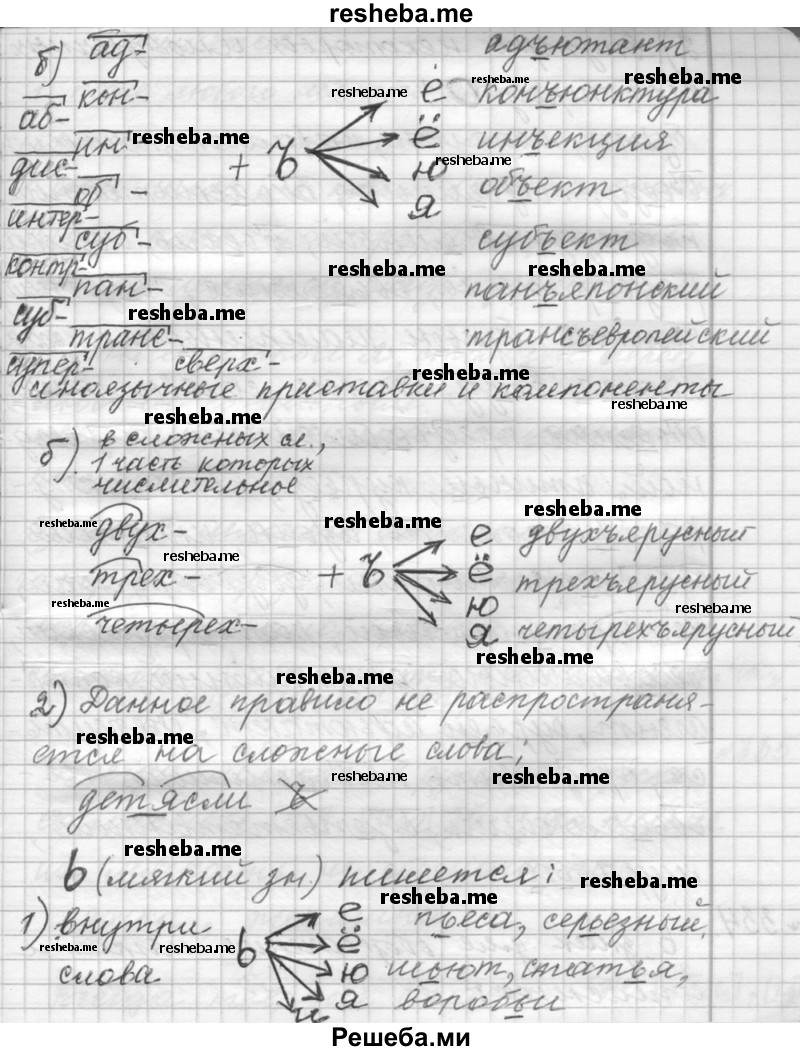 resheba.me
б) ад- адъютант
кон- ё конъюнктура
аб- ин- + Ъ Ё инъекция
дис- об- ю объект
интер- суб- я субъект
контр- пан- панъяпонский
суб- транс- трансъевропейский
супер- сверх-
иноязычные приставки и компоненты
б) в сложных сл.,
1 часть которых
числительное
двух- е двухъярусный
трех- + Ъ Ё трехъярусный
четырех- ю
я четырехъярусный
2) Данное правило не распространя-
ется на сложные слова;
детясли ъ
ь (мягкий зн) пишется:
1) внутри ь е пьеса, серьезный,
слова ё
ю шьют, статья,
я воробьи
и
Решеба.ми